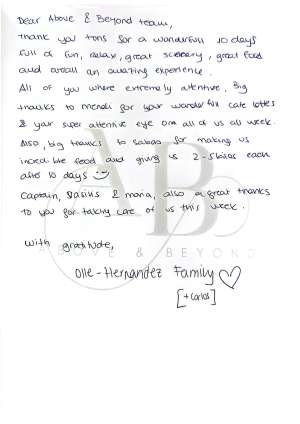 Dear Above & Beyond team,
thank you tons for a wonderfull 10 days
full of fun, relax, great scenery, great food
and overall an amazing experience.
All of you where extremely attentive, Big
thanks to for your wonderfull cafe lattes
& your super attentive eye on all of us all week.
Also, big thanks to for making us
incredible food and giving us 2-5 kilos each
after 10 days
Captain, & maria, also a great thanks
to you for taking care of us this week.
With gratitude,
ABOVE & BEYOND
Olle-Hernandez Family ♡
[+ Carlos]
AB